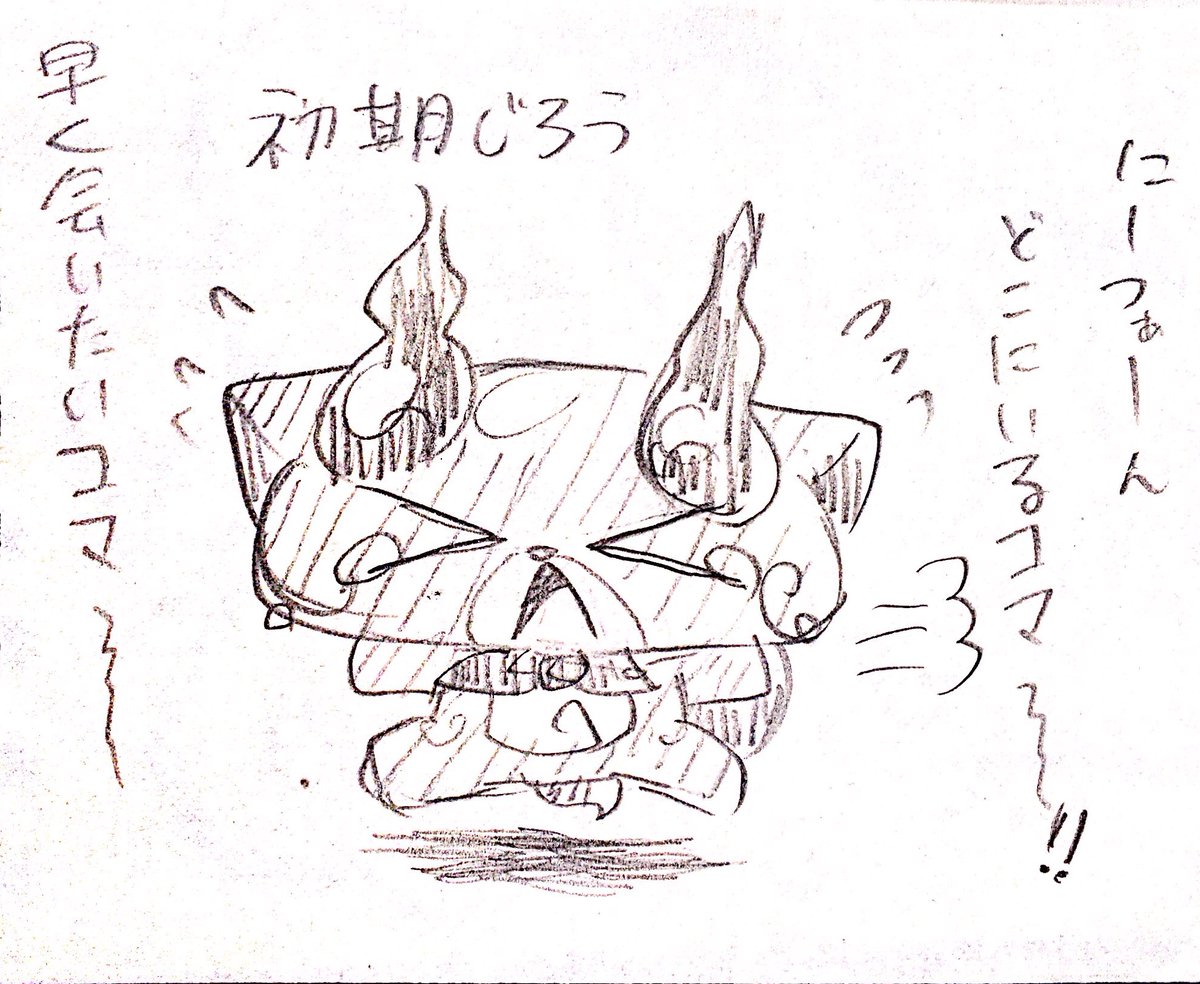 初期じろう
にーつぁーん
どこにいるコマ〜!!
早く会いたいコマ〜